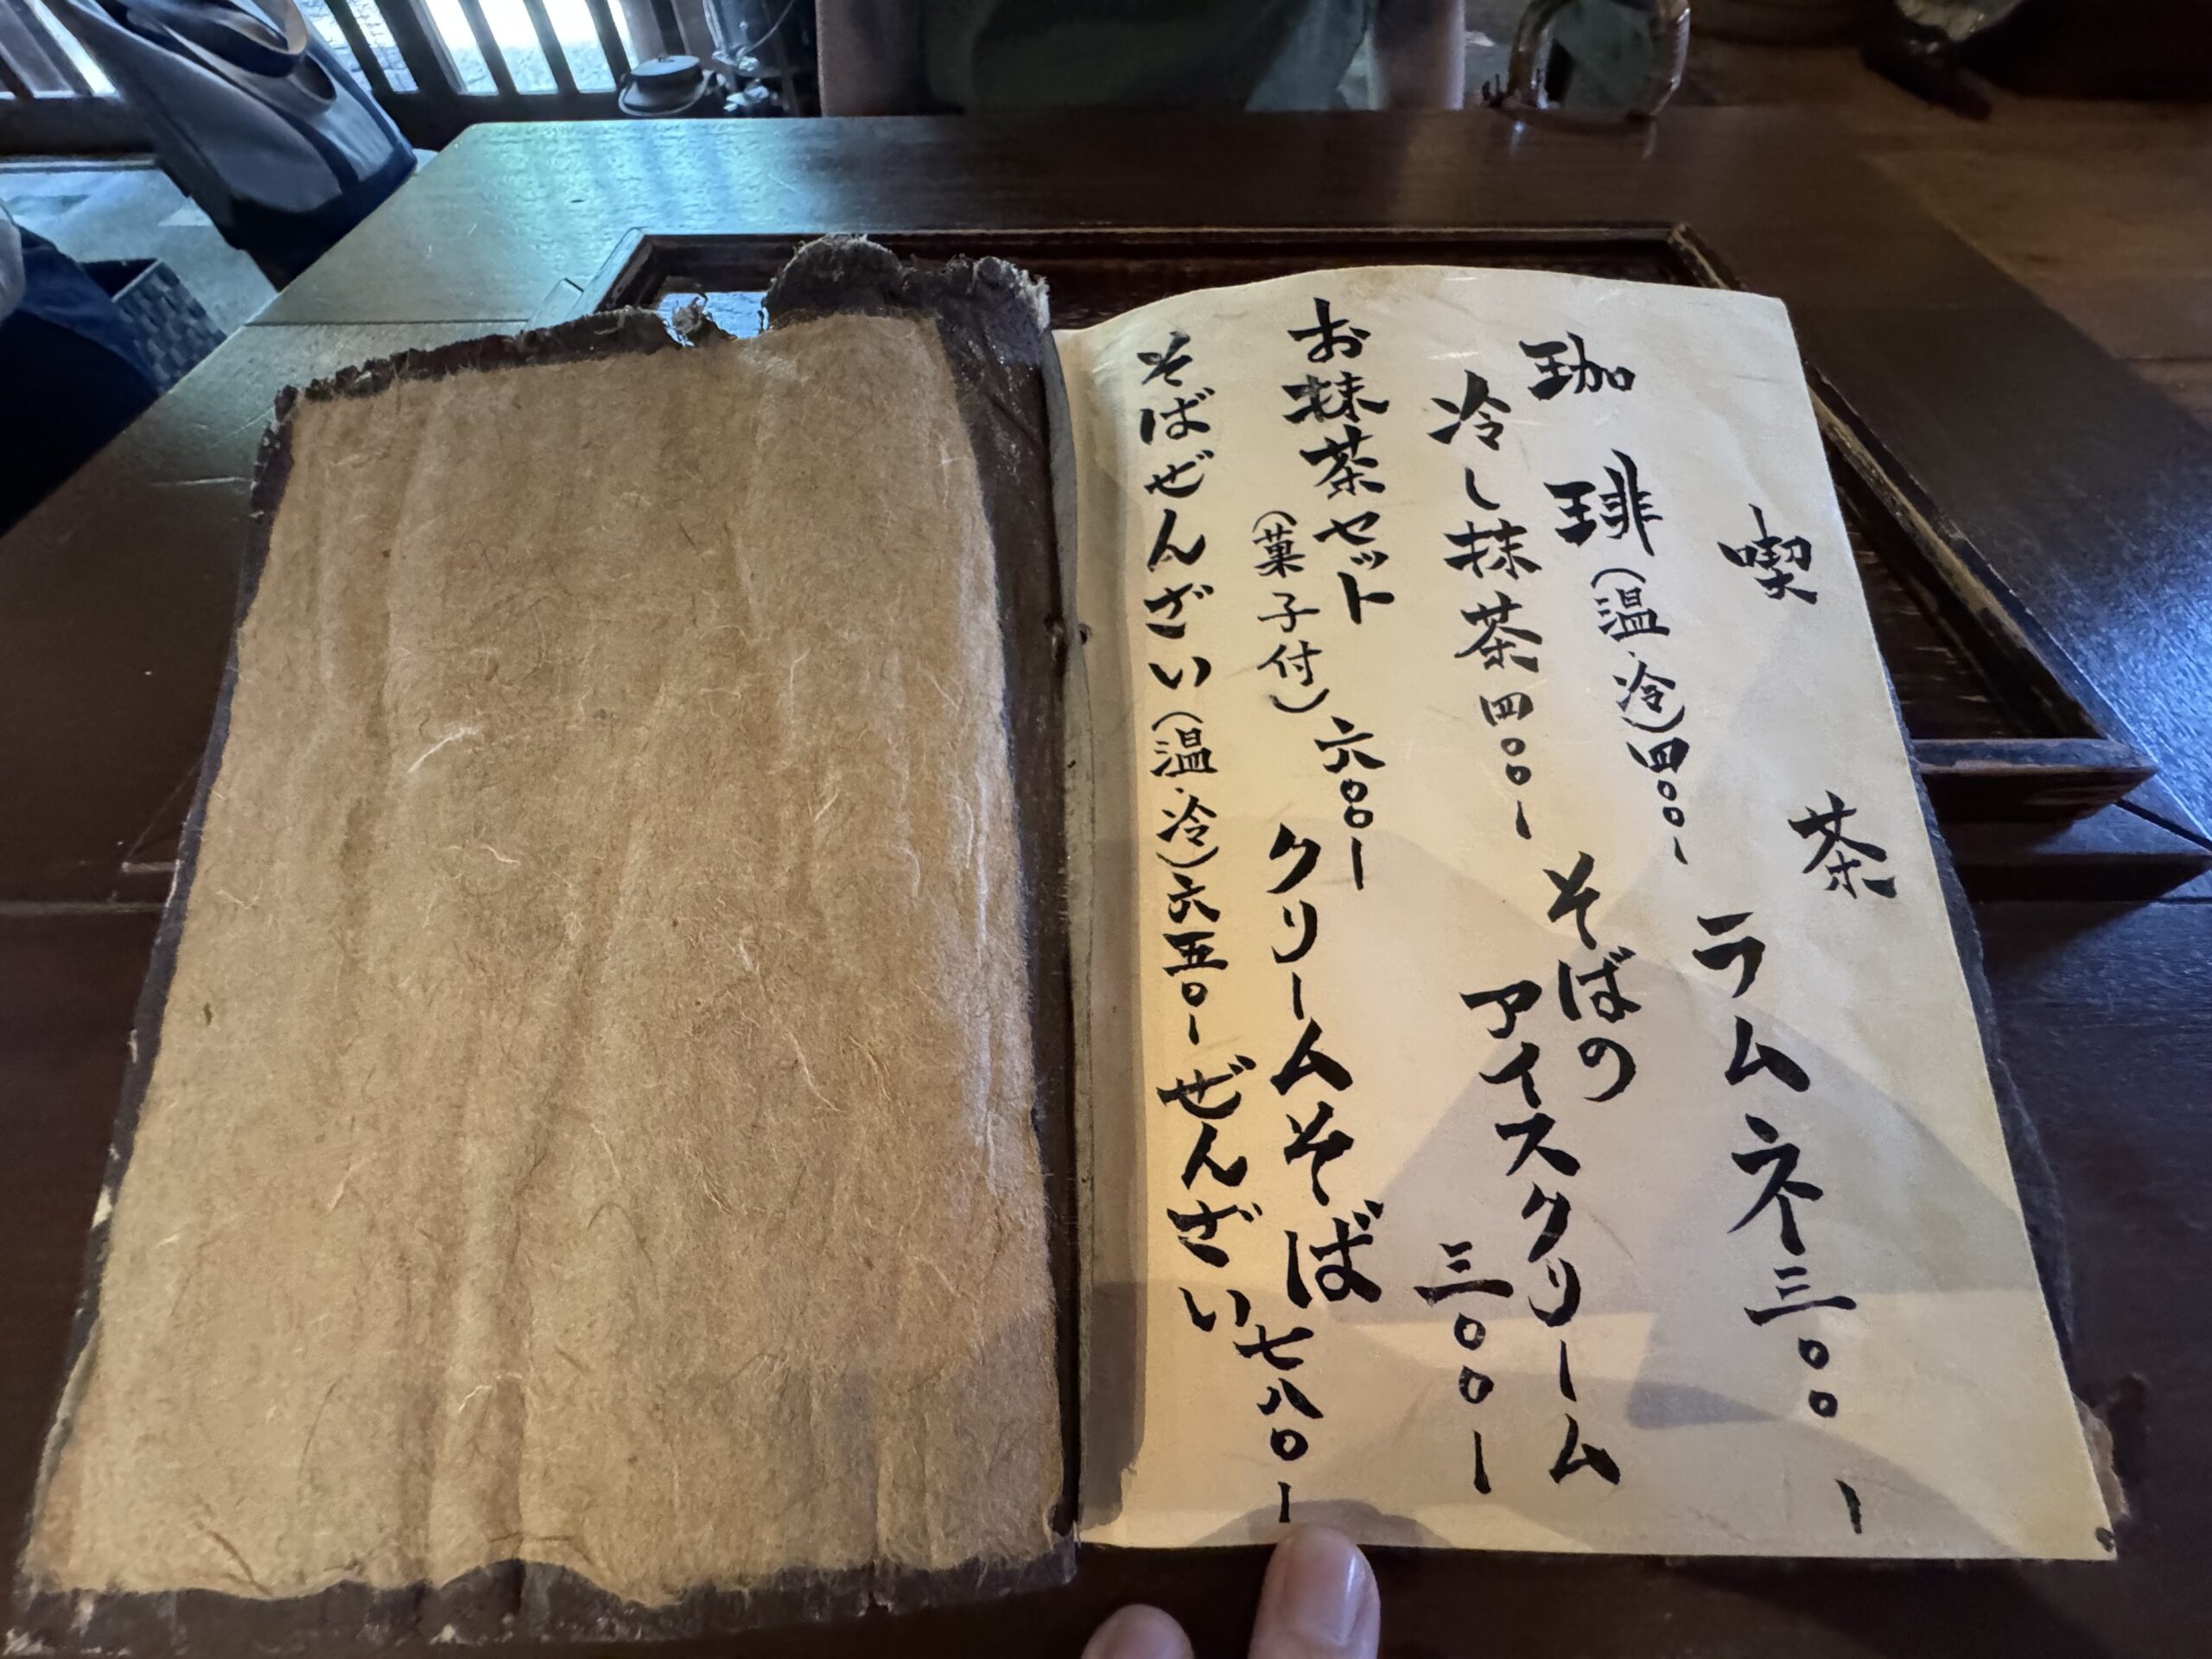 喫茶
珈琲(温・冷)四〇〇ー
ラムネ三〇〇ー
冷し抹茶四〇〇ー
そばの
アイスクリーム
三〇〇ー
お抹茶セット
(菓子付)六〇〇ー
クリームそば
ぜんざい七八〇ー
そばぜんざい(温・冷)六五〇ー